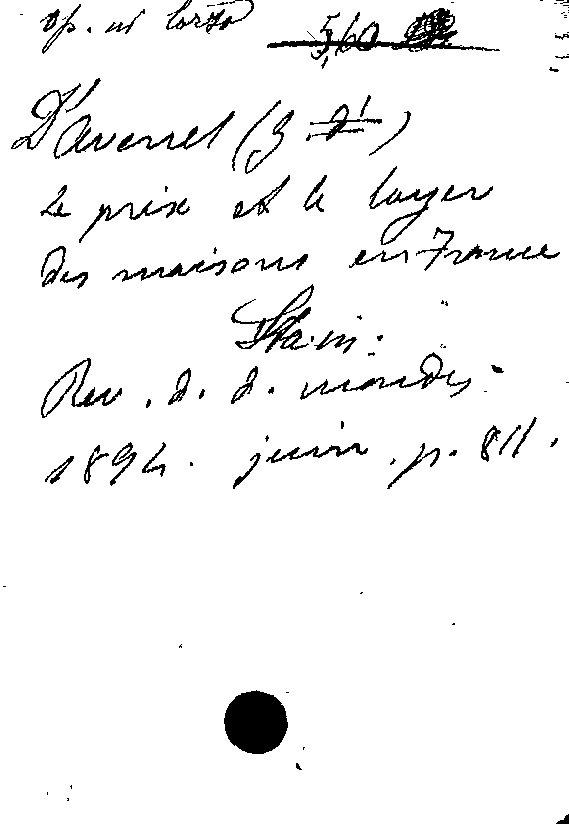 op. in corso 5,60
D'Avenel (G d')
Le prix et le loyer
des maisons en France
Rev. d. d. mondes.
1894. juin. p. 811.